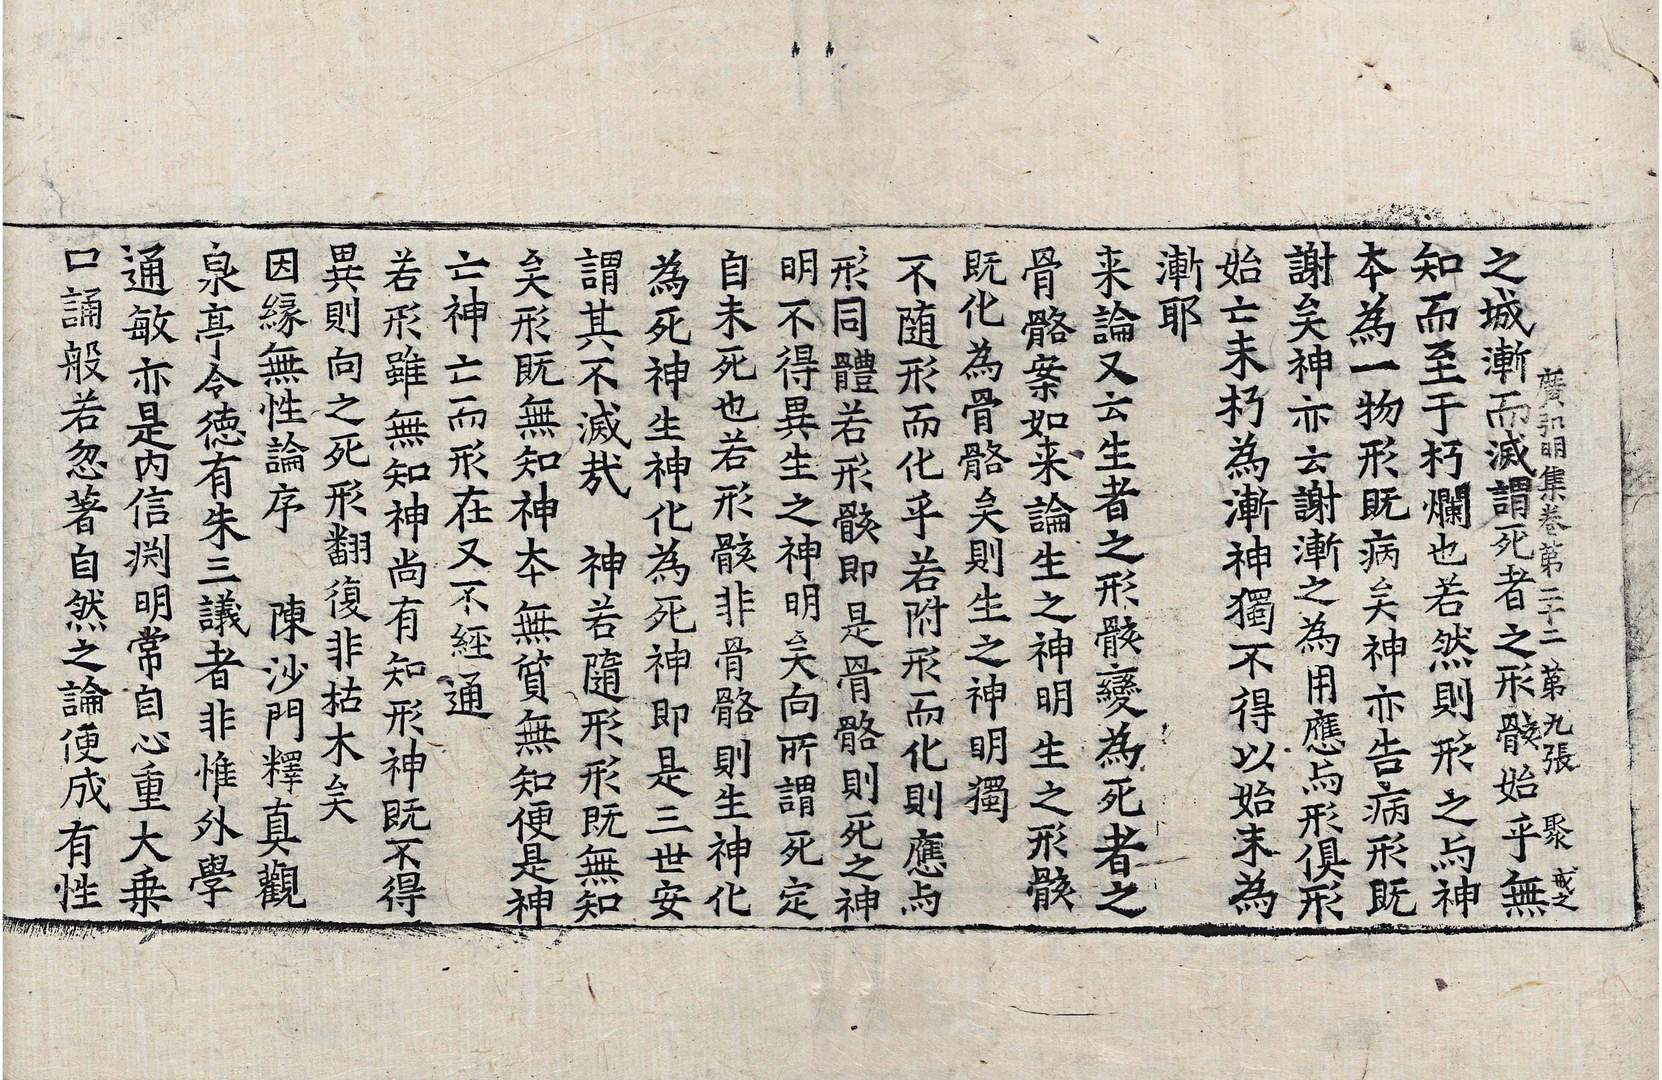 廣弘明集卷第二十二 第九張 聚 戒之
之城漸而滅謂死者之形骸始乎無
知而至于朽爛也若然則形之与神
本為一物形既病矣神亦告病形既
謝矣神亦云謝漸之為用應与形俱形
始亡未朽為漸神獨不得以始末為
漸耶
来論又云生者之形骸變為死者之
骨骼案如来論生之神明生之形骸
既化為骨骼矣則生之神明獨
不隨形而化乎若附形而化則應与
形同體若形骸即是骨骼則死之神
明不得異生之神明矣向所謂死定
自未死也若形骸非骨骼則生神化
為死神生神化為死神即是三世安
謂其不滅㢤 神若隨形形既無知
矣形既無知神本無質無知便是神
亡神亡而形在又不經通
若形雖無知神尚有知形神既不得
異則向之死形翻復非枯木矣
因緣無性論序 陳沙門釋真觀
泉亭令德有朱三議者非惟外學
通敏亦是內信淵明常自心重大乗
口誦般若忽著自然之論便成有性